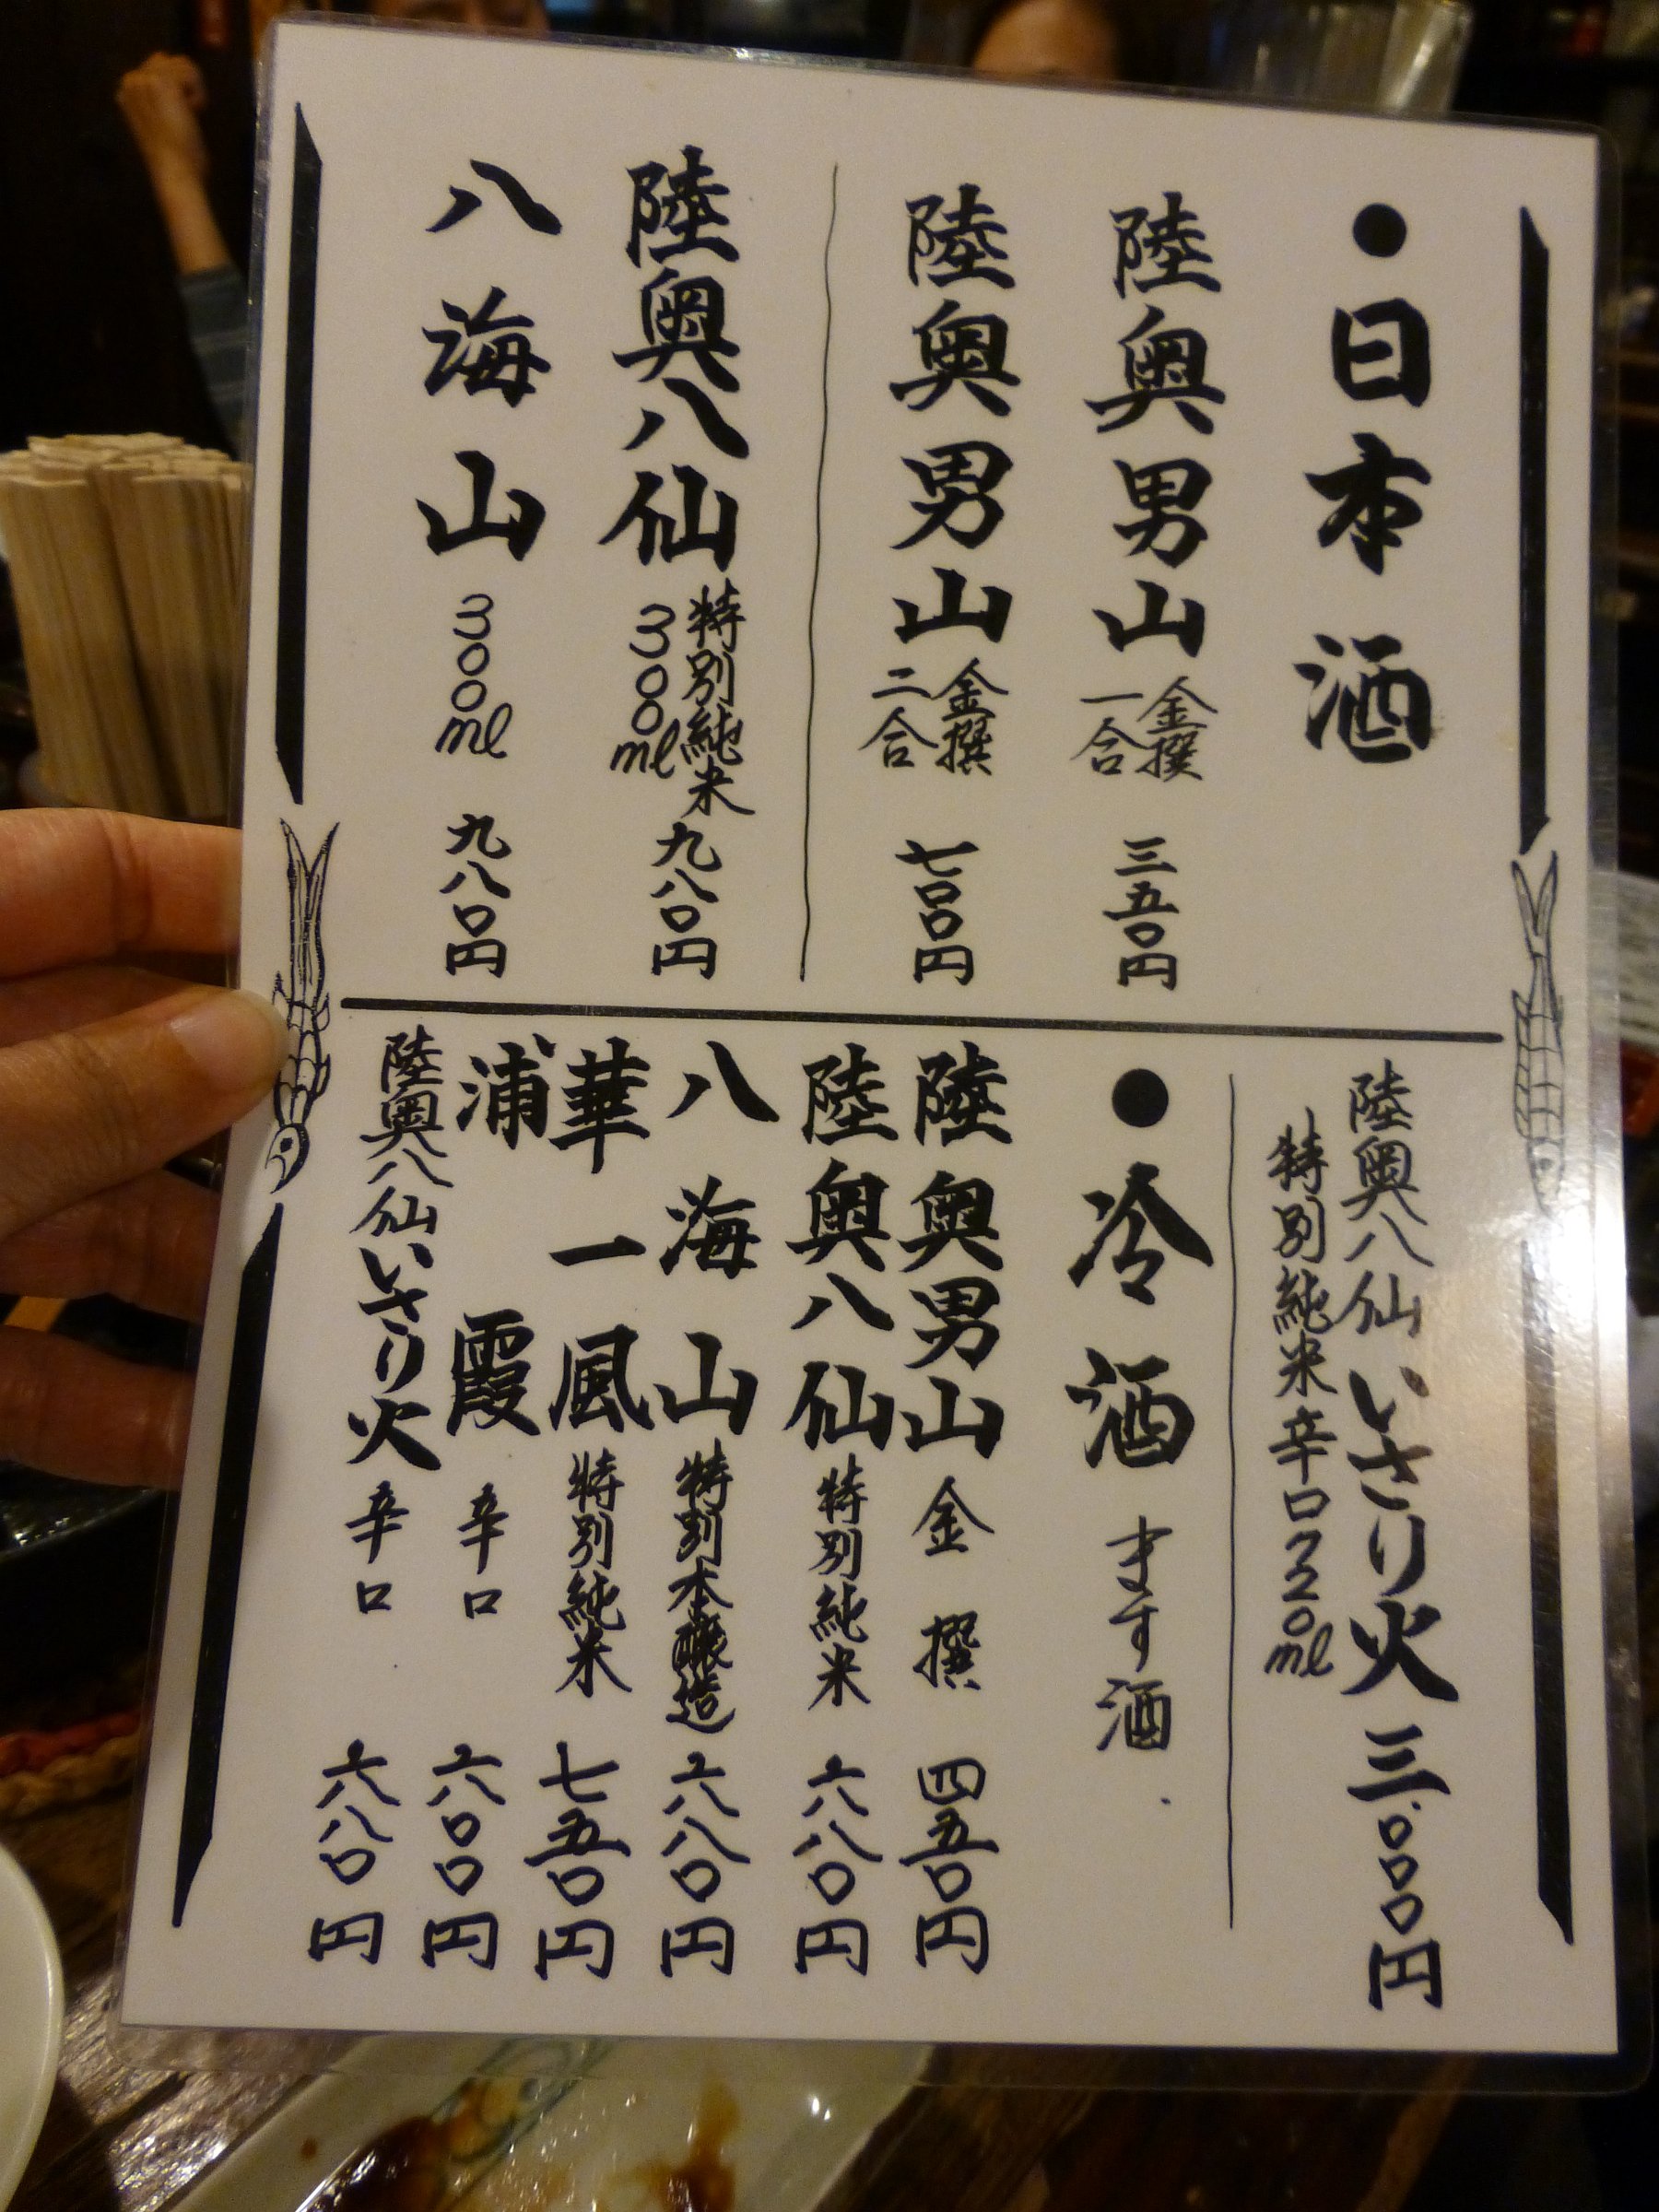 ●日本酒
陸奥男山 金撰 一合 三五〇円
陸奥男山 金撰 二合 七〇〇円
陸奥八仙 特別純米 300ml 九八〇円
八海山 300ml 九八〇円
陸奥八仙 いさり火 三.〇〇〇円
特別純米辛口720ml
●冷酒 ます酒
陸奥男山 金撰 四五〇円
陸奥八仙 特別純米 六八〇円
八海山 特別本醸造 六八〇円
華一風 特別純米 七五〇円
浦霞 辛口 六〇〇円
陸奥八仙いさり火 辛口 六八〇円